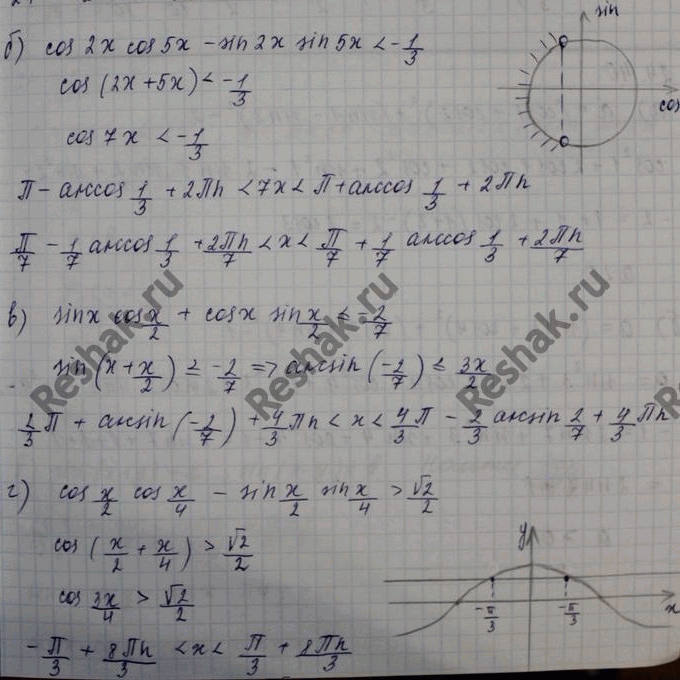 sin
б) cos 2x cos 5x - sin 2x sin 5x < -1/3
cos
cos (2x+5x) < -1/3
cos 7x < -1/3
П - arccos 1/3 + 2Пn < 7x < П + arccos 1/3 + 2Пn
П/7 - 1/7 arccos 1/3 + 2Пn/7 < x < П/7 + 1/7 arccos 1/3 + 2Пn/7
в) sin x cos x/2 + cos x sin x/2 ≤ -2/7
sin (x + x/2) ≤ -2/7 => arcsin (-2/7) ≤ 3x/2
2/3 П + arcsin (-2/7) + 4/3 Пn < x < 4/3 П - 2/3 arcsin 2/7 + 4/3 Пn
г) cos x/2 cos x/4 - sin x/2 sin x/4 > √2/2
cos (x/2 + x/4) > √2/2
cos 3x/4 > √2/2
-П/3 + 8Пn/3 < x < П/3 + 8Пn/3
y
x
-П/3
-П/3
Reshak.ru
Reshak.ru
Reshak.ru